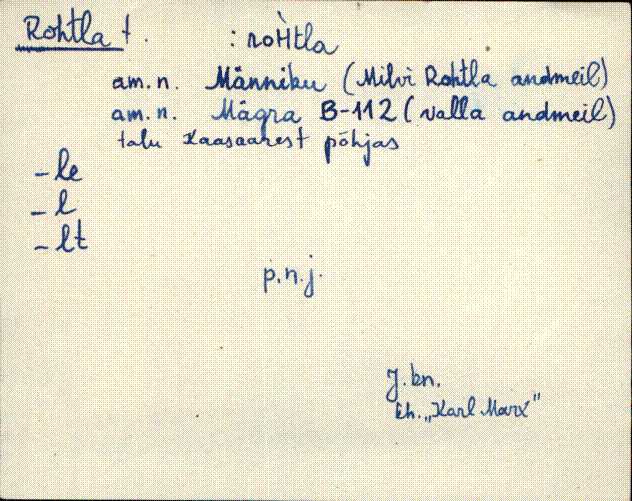 Rohtla t. : roH̀tla
am. n. Männiku (Milvi Rohtla andmeil)
am. n. Mägra B-112 (valla andmeil)
talu Kaasaarest põhjas
-le
-l
-lt
p.n.j.
J. kn.
kh. „Karl Marx"